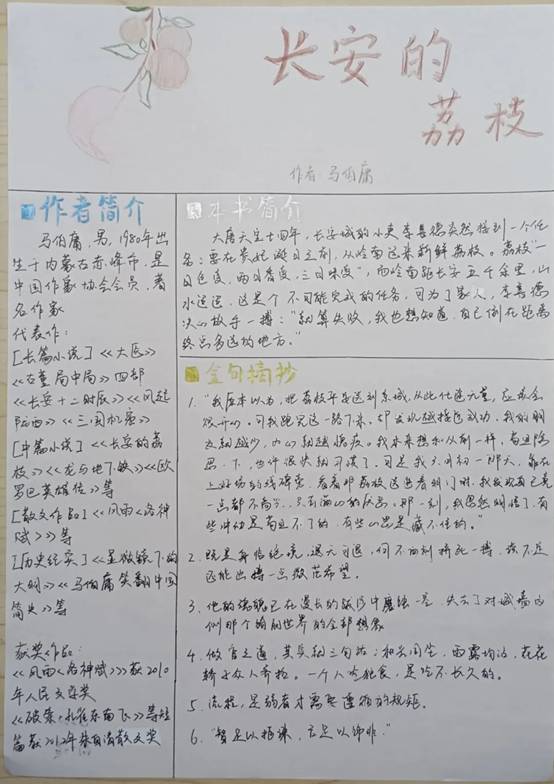 长安的
荔枝
作者 马伯庸
作者简介
马伯庸，男，1980年出
生于内蒙古赤峰市，是
中国作家协会会员，著
名作家
代表作：
[长篇小说]<<大医>>
<<古董局中局>>四部
<<长安十二时辰>><<风起
陇西>><<三国机密>>
[中篇小说]<<长安的荔
枝>><<龙与地下铁>><<欧
罗巴英雄传>>等
[散文作品]<<风雨<洛神
赋>>>等
[历史纪实]<<显微镜下的
大明>><<马伯庸笑翻中国
简史>>等
获奖作品：
<<风雨<洛神赋>>>获2010
年人民文学奖
<<破案：孔雀东南飞>>等短
篇获2012年朱自清散文奖
本书简介
大唐天宝十四年，长安城的小吏李善德突然接到一个任
务：要在贵妃诞日之前，从岭南运来新鲜荔枝。荔枝"一
日色变，两日香变，三日味变"，而岭南距长安五千余里，山
水迢迢，这是个不可能完成的任务，可为了家人，李善德
决心放手一搏："就算失败，我也想知道，自己倒在距离
终点多远的地方。"
金句摘抄
1. "我原本以为，把荔枝平安送到京城，从此仕途无量，应该会
很开心。可我跑完这一路下来，却发现越接近成功，我的朋
友就越少，内心就越愧疚。我本来想和从前一样，苟且隐
忍一下，也许很快就习惯了。可是我六月初一那天，靠在
上好坊的残碑旁，看着那荔枝送进春明门时，我发现自己竟
一点都不高兴，只有满心的厌恶。那一刻，我忽然明悟了，有
些冲动是苟且不了的，有些心思是藏不住的。"
2. 既是身临绝境，退无可退，何不向前拼死一搏，说不定
还能出搏一点微茫希望。
3. 他的
4. 做官之道，其实就三句话：和光同尘，雨露均沾，花花
轿子众人抬。一个人吃独食，是吃不长久的。
5. 流程，是弱者才需要遵循的规矩。
6. "智足以拒谏，言足以饰非。"